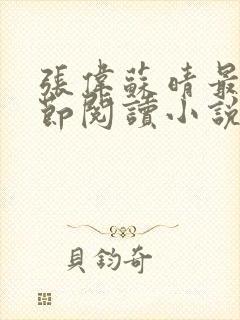 張偉蘇晴最
節閱讀小說
貝鈞奇